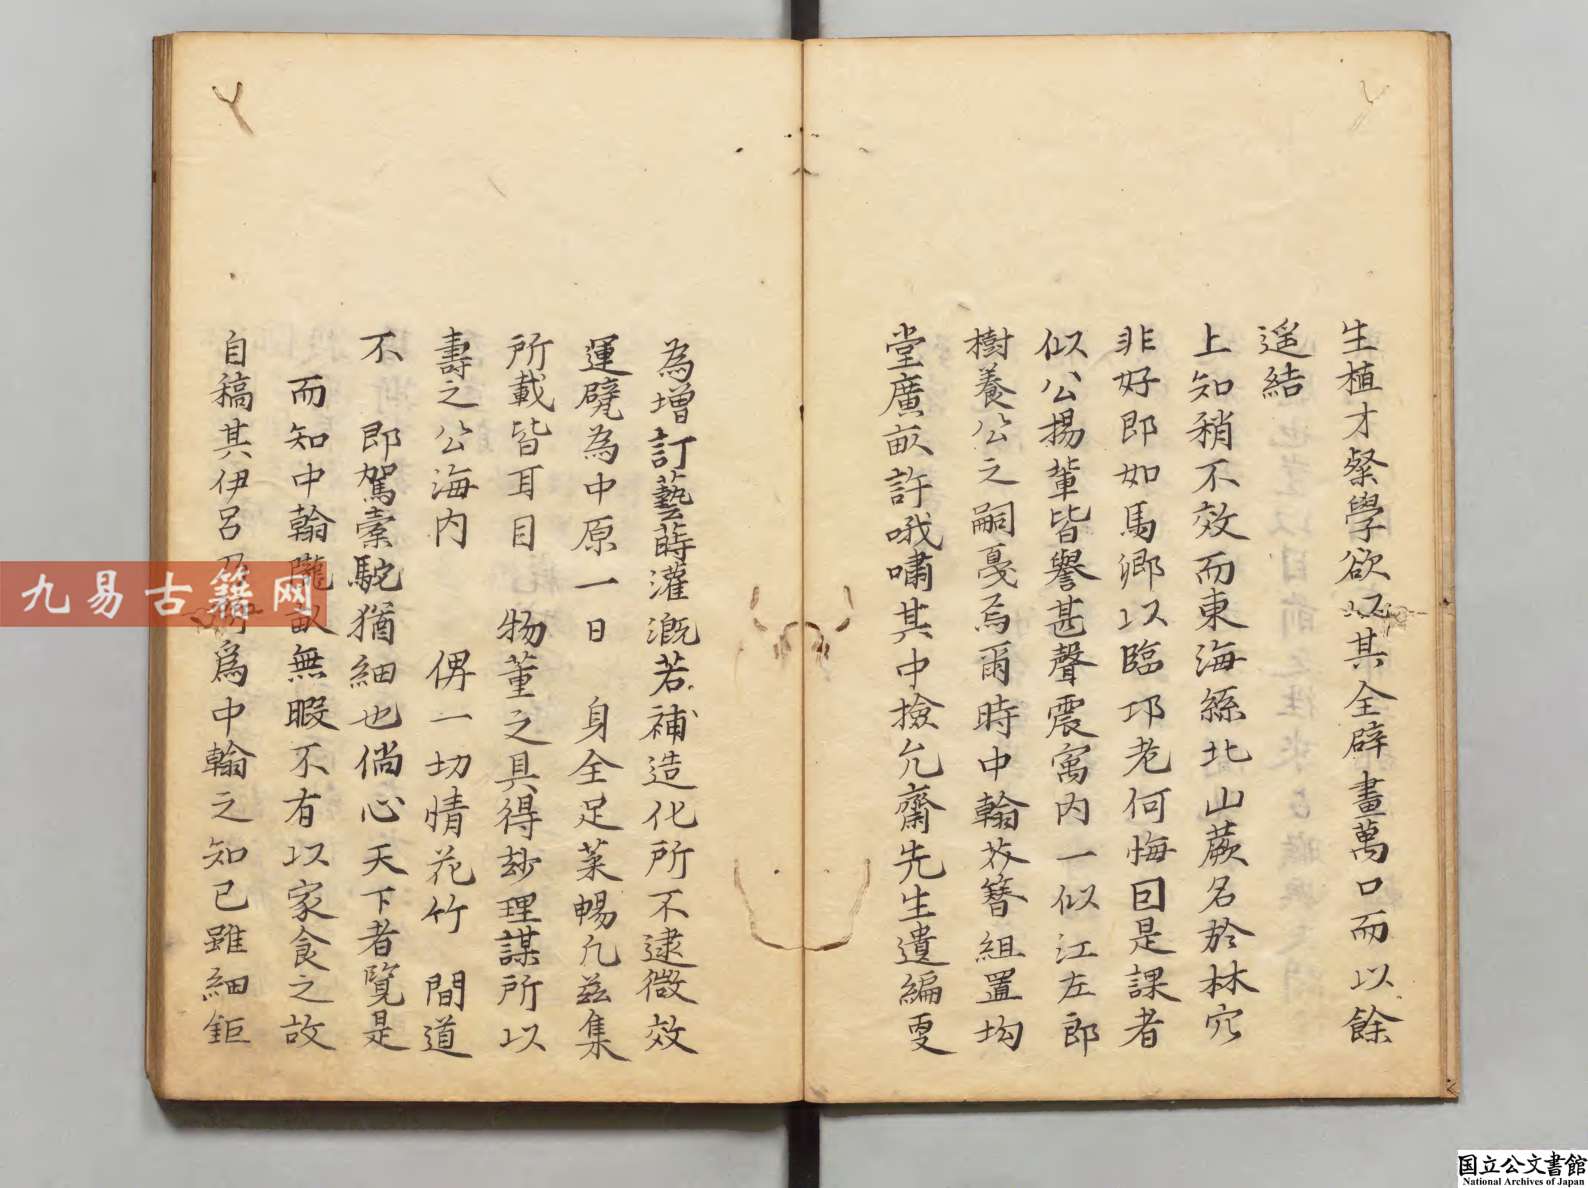 生植才粲學欲以其全辟畫萬口而以餘
遥結
上知稍不效而東海絲北山蕨名於林穴
非好即如馬卿以臨邛老何悔囙是課者
似公揚輩皆譽甚聲震寓内一似江左郎
樹養公之嗣戞爲爾時中翰簪組置均
堂廣畝許哦嘯其中撿允齋先生遺編更
為增訂藝蒔灌溉若補造化所不逮微效
運甓為中原一日 身全足菜暢凢兹集
所載皆耳目 物董之具得玅理謀所以
壽之公海内 俾一切情花竹 間道
不 即駕橐駝猶細也倘心天下者覽是
而知中翰隴畝無暇不有以家食之故
自稿其伊呂 爲中翰之知已雖細鉅
九易古籍网
国立公文書館
National Archives of Japan